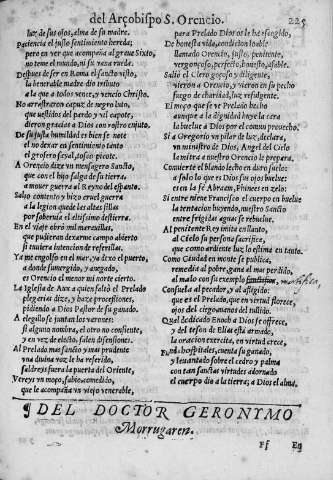 del Arçobispo S. Orencio. 225
luz de sus ojos, alma de su madre.
Paciencia el justo sentimiento hereda;
pero en ver que acompaña al grave Sixto,
no teme el mundo, ni su vana rueda.
Despues de ser en Roma el sancto visto,
la venerable madre dio tributo
a la que a todos vence, y vencio Christo.
No arrastraron capuz de negro luto,
que vestidos del pardo y vil capote,
dieron gracias a Dios con rostro enjuto.
De su justa humildad es bien se note
el no dexar en sentimiento tanto
el grosero sayal, tosco picote.
A Orencio dize un mensagero Sancto,
que con el hijo salga de su tierra,
a mover guerra al Reyno del espanto.
Salio contento y hizo cruel guerra
a la legion que de las altas sillas
por sobervia el altissimo destierra.
En el viage obrò mil maravillas,
que pudieran dexarme campo abierto
si tuviera intencion de referillas.
Ya un engolfo en el mar, ya dexo el puerto,
a donde sumergido, y anegado,
es Orencio al menor mi norte cierto.
La Iglesia de Aux a quien faltò el Prelado
plegarias dize, y haze processiones,
pidiendo a Dios Pastor de su ganado.
A elegillo se juntan los varones,
si alguno nombra, el otro no consiente,
y en vez de electo, salen disensiones.
Al Prelado mas sancto y mas prudente
una divina voz le ha referido,
saldreys fuera la puerta del Oriente,
Vereys un moço, sabio comedido,
que le acompaña un viejo venerable,
para Prelado Dios os le ha escogido,
De honesta vida, condicion loable
llamado Orencio, justo, penitente,
vergonçoso, perfecto, honesto, afable.
Saliò el Clero goçoso y diligente,
vieron a Orencio, y vieron en su pecho
fuego de charidad, luz refulgente.
El moço que se ve Prelado hecho
aunque a la dignidad huye la cara
la buelve a Dios por el comun provecho.
Si a Gregorio un pilar de luz, declara,
un ministro de Dios, Angel del Cielo
la mitra a nuestro Orencio le prepara.
Convierte el blando lecho en duro suelo:
a solo lo que es Dios sus ojos buelve:
es en la fè Abraam, Phinees en zelo:
Si entre nieve Francisco el cuerpo en buelve
la tentacion huyendo, nuestro Sancto
entre frigidas aguas se rebuelve.
Al penitente Rey imita en llanto,
al Cielo su persona sacrifica,
que como ardiente luz lo estima en tanto.
Como Ciudad en monte se publica,
remedia al pobre, gana al mas perdido,
al malo con su exemplo
Consuela al pecador, y al afligido:
que es el Prelado, que en virtud florece,
ojos del ciego manos del tullido.
Qual dedicado Enoch a Dios se offrece,
y del teson de Elias està armado,
la oracion exercita, en virtud crece.
hospitales, cuenta su ganado,
y levantado sobre el cedro y palma
con tan sanctas virtudes adornado
el cuerpo dio a la tierra; a Dios el alma.
¶ DEL DOCTOR GERONYMO
Morrugaren.
Ff Eg